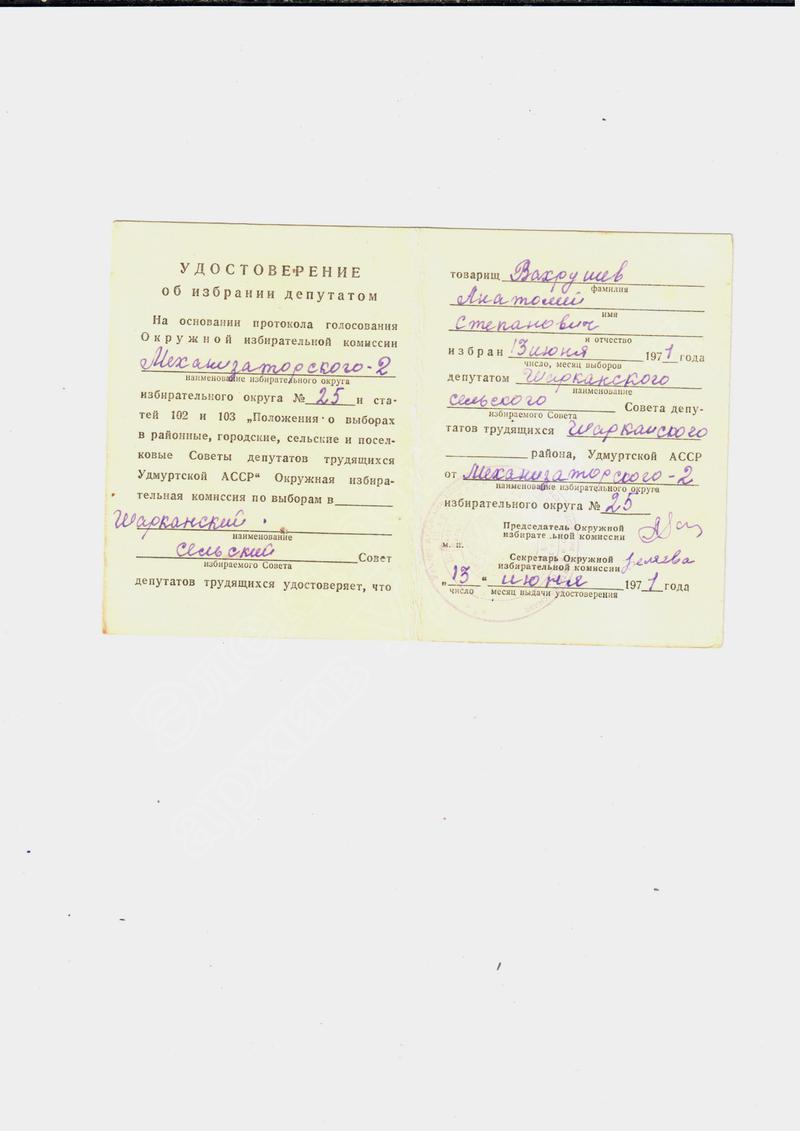 УДОСТОВЕРЕНИЕ
об избрании депутатом
На основании протокола голосования
Окружной избирательной комиссии
Механизаторского-2
наименование избирательного округа
избирательного округа № 25 и ста-
тей 102 и 103 „Положения о выборах
в районные, городские, сельские и посел-
ковые Советы депутатов трудящихся
Удмуртской АССР“ Окружная избира-
тельная комиссия по выборам в
Шарканский
наименование
сельский Совет
избираемого Совета
депутатов трудящихся удостоверяет, что
товарищ Вахрушев
фамилия
Анатолий
имя
Степанович
и отчество
избран 13 июня 1971 года
число, месяц выборов
депутатом Шарканского
наименование
сельского Совета депу-
избираемого Совета
татов трудящихся Шарканского
района, Удмуртской АССР
от Механизаторского-2
наименование избирательного округа
избирательного округа № 25
Председатель Окружной
избирательной комиссии
м. п.
Секретарь Окружной
избирательной комиссии
„13“ июня 1971 года
число месяц выдачи удостоверения